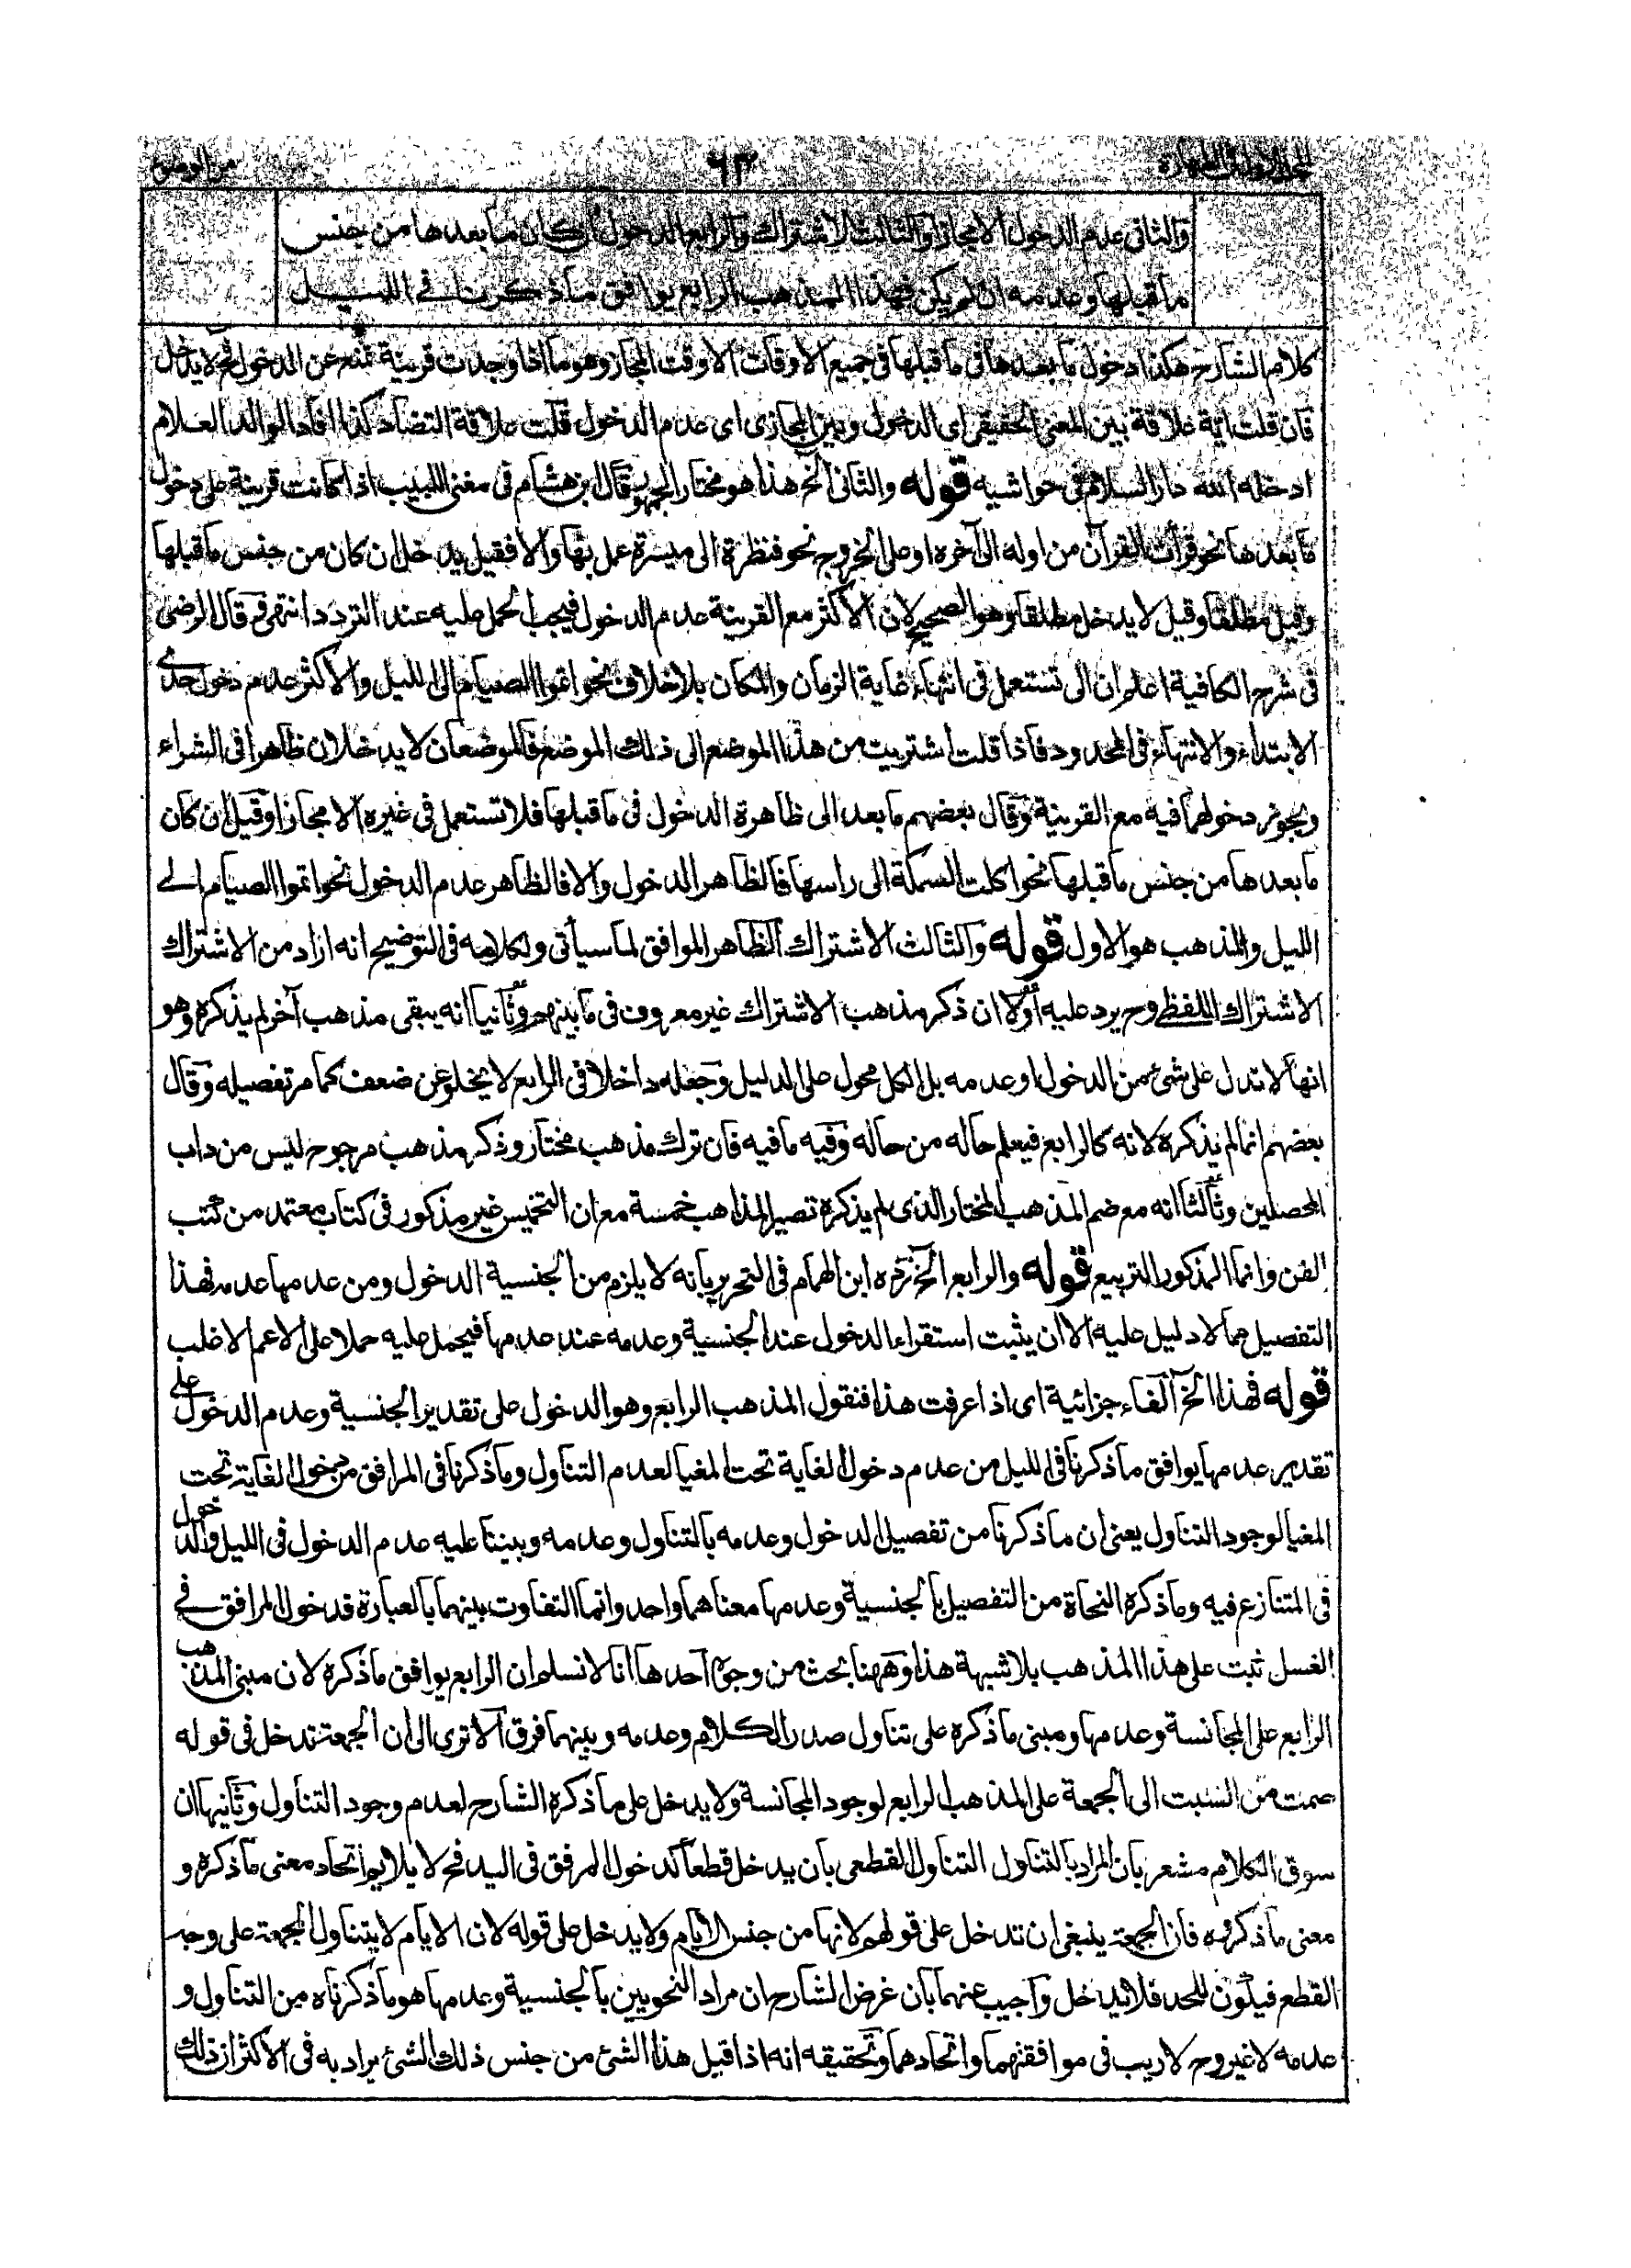 ٦٣
والثانى عدم الدخول الا مجازا والثالث الاشتراك والرابع الدخول ان كان ما بعدها من جنس
ما قبلها وعدمه ان لم يكن فهذا المذهب الرابع يوافق ما ذكرنا فى الليل
كلام الشارح هكذا دخول ما بعدها فى ما قبلها فى جميع الاوقات الا وقت المجاز وهو ما اذا وجدت قرينة تمنع عن الدخول فح لا يدخل
فان قلت اية علاقة بين المعنى الحقيقى اى الدخول وبين المجازى اى عدم الدخول قلت علاقة التضاد كذا افاد الوالد العلام
ادخله الله دار السلام فى حواشيه قوله والثانى الخ هذا هو مختار الجمهور قال ابن هشام فى مغنى اللبيب اذا كانت قرينة على دخول
ما بعدها نحو قرأت القرآن من اوله الى آخره او على الخروج نحو فنظرة الى ميسرة عمل بها والا فقيل يدخل ان كان من جنس ما قبلها
وقيل مطلقا وقيل لا يدخل مطلقا وهو الصحيح لان الاكثر مع القرينة عدم الدخول فيجب الحمل عليه عند التردد انتهى وقال الرضى
فى شرح الكافية اعلم ان الى تستعمل فى انتهاء غاية الزمان والمكان بلا خلاف نحو اتموا الصيام الى الليل والاكثر عدم دخول حدى
الابتداء والانتهاء فى المحدود فاذا قلت اشتريت من هذا الموضع الى ذلك الموضع فالموضعان لا يدخلان ظاهرا فى الشراء
ويجوز دخولهما فيه مع القرينة وقال بعضهم ما بعد الى ظاهرة الدخول فى ما قبلها فلا تستعمل فى غيره الا مجازا وقيل ان كان
ما بعدها من جنس ما قبلها نحو اكلت السمكة الى راسها فالظاهر الدخول والا فالظاهر عدم الدخول نحو اتموا الصيام الى
الليل والمذهب هو الاول قوله والثالث الاشتراك الظاهر الموافق لما سيأتى ولكلامه فى التوضيح انه اراد من الاشتراك
الاشتراك اللفظى وح يرد عليه أولا ان ذكر مذهب الاشتراك غير معروف فى ما بينهم وثانيا انه يبقى مذهب آخر لم يذكره وهو
انها لا تدل على شئ من الدخول او عدمه بل الكل محول على الدليل وجعله داخلا فى الرابع لا يخلو عن ضعف كما مر تفصيله وقال
بعضهم انما لم يذكره لانه كالرابع فيعلم حاله من حاله وفيه ما فيه فان ترك مذهب مختار وذكر مذهب مرجوح ليس من داب
المحصلين وثالثا انه مع ضم المذهب المختار الذى لم يذكره تصير المذاهب خمسة مع ان التخميس غير مذكور فى كتاب معتمد من كتب
الفن وانما المذكور التربيع قوله والرابع الخ رده ابن الهمام فى التحرير بانه لا يلزم من الجنسية الدخول ومن عدمها عدمه فهذا
التفصيل مما لا دليل عليه الا ان يثبت استقراء الدخول عند الجنسية وعدمه عند عدمها فيحمل عليه حملا على الاعم الاغلب
قوله فهذا الخ الفاء جزائية اى اذا عرفت هذا فنقول المذهب الرابع وهو الدخول على تقدير الجنسية وعدم الدخول على
تقدير عدمها يوافق ما ذكرنا فى الليل من عدم دخول الغاية تحت المغيا لعدم التناول وما ذكرنا فى المرافق من دخول الغاية تحت
المغيا لوجود التناول يعنى ان ما ذكرنا من تفصيل الدخول وعدمه بالتناول وعدمه وبنينا عليه عدم الدخول فى الليل والدخول
فى المتنازع فيه وما ذكره النحاة من التفصيل بالجنسية وعدمها معناهما واحد وانما التفاوت بينهما بالعبارة فدخول المرافق فى
الغسل ثبت على هذا المذهب بلا شبهة هذا وههنا بحث من وجوه احدها انا لا نسلم ان الرابع يوافق ما ذكره لان مبنى المذهب
الرابع على المجانسة وعدمها ومبنى ما ذكره على تناول صدر الكلام وعدمه وبينهما فرق الا ترى الى ان الجمعة تدخل فى قوله
صمت من السبت الى الجمعة على المذهب الرابع لوجود المجانسة ولا يدخل على ما ذكره الشارح لعدم وجود التناول وثانيها ان
سوق الكلام مشعر بان المراد بالتناول التناول القطعى بان يدخل قطعا كدخول المرفق فى اليد فح لا يلايم اتحاد معنى ما ذكره و
معنى ما ذكروه فان الجمعة ينبغى ان تدخل على قولهم لانها من جنس الايام ولا يدخل على قوله لان الايام لا يتناول الجمعة على وجه
القطع فيكون للحد فلا يدخل واجيب عنهما بان غرض الشارح ان مراد النحويين بالجنسية وعدمها هو ما ذكرناه من التناول و
عدمه لا غير وح لا ريب فى موافقتهما واتحادهما وتحقيقه انه اذا قيل هذا الشئ من جنس ذلك الشئ يراد به فى الاكثر ان ذلك